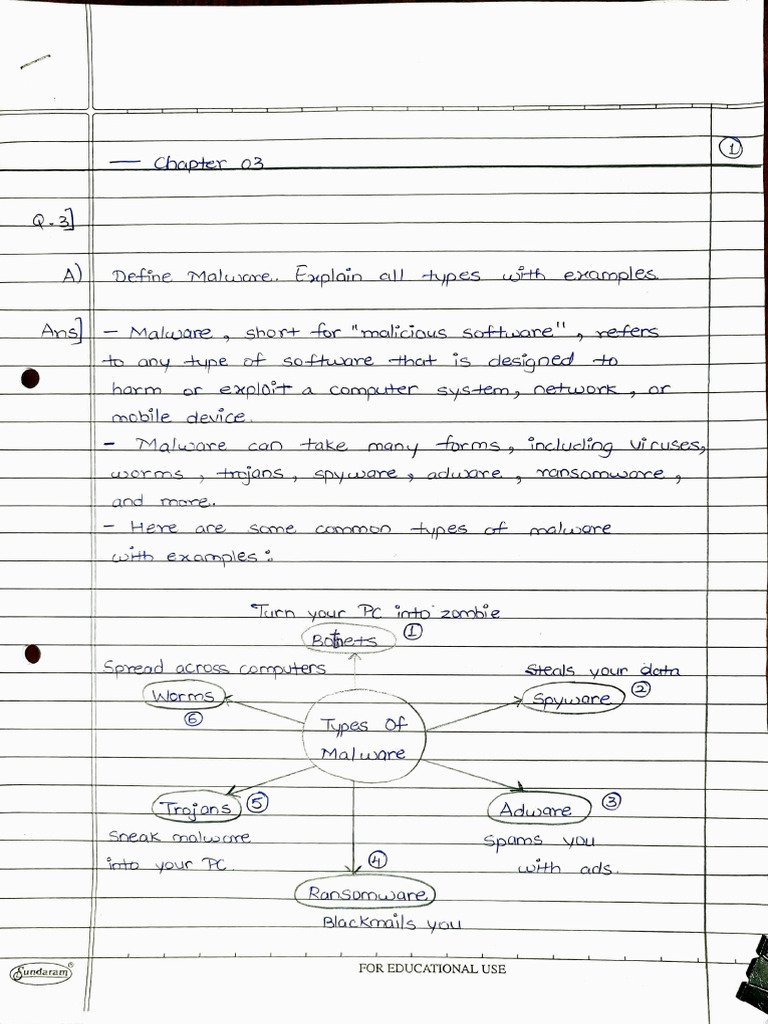 ①
— Chapter 03
Q.3]
A) Define Malware. Explain all types with examples.
Ans] - Malware, short for "malicious software", refers
to any type of software that is designed to
harm or exploit a computer system, network, or
mobile device.
- Malware can take many forms, including viruses,
worms, trojans, spyware, adware, ransomware,
and more.
- Here are some common types of malware
with examples:
Turn your PC into zombie
Botnets ①
Spread across computers
Steals your data
Worms
Spyware ②
⑥
Types Of
Malware
Trojans ⑤
Adware ③
Sneak malware
into your PC.
Spams you
with ads.
④
Ransomware
Blackmails you
Sundaram®
FOR EDUCATIONAL USE